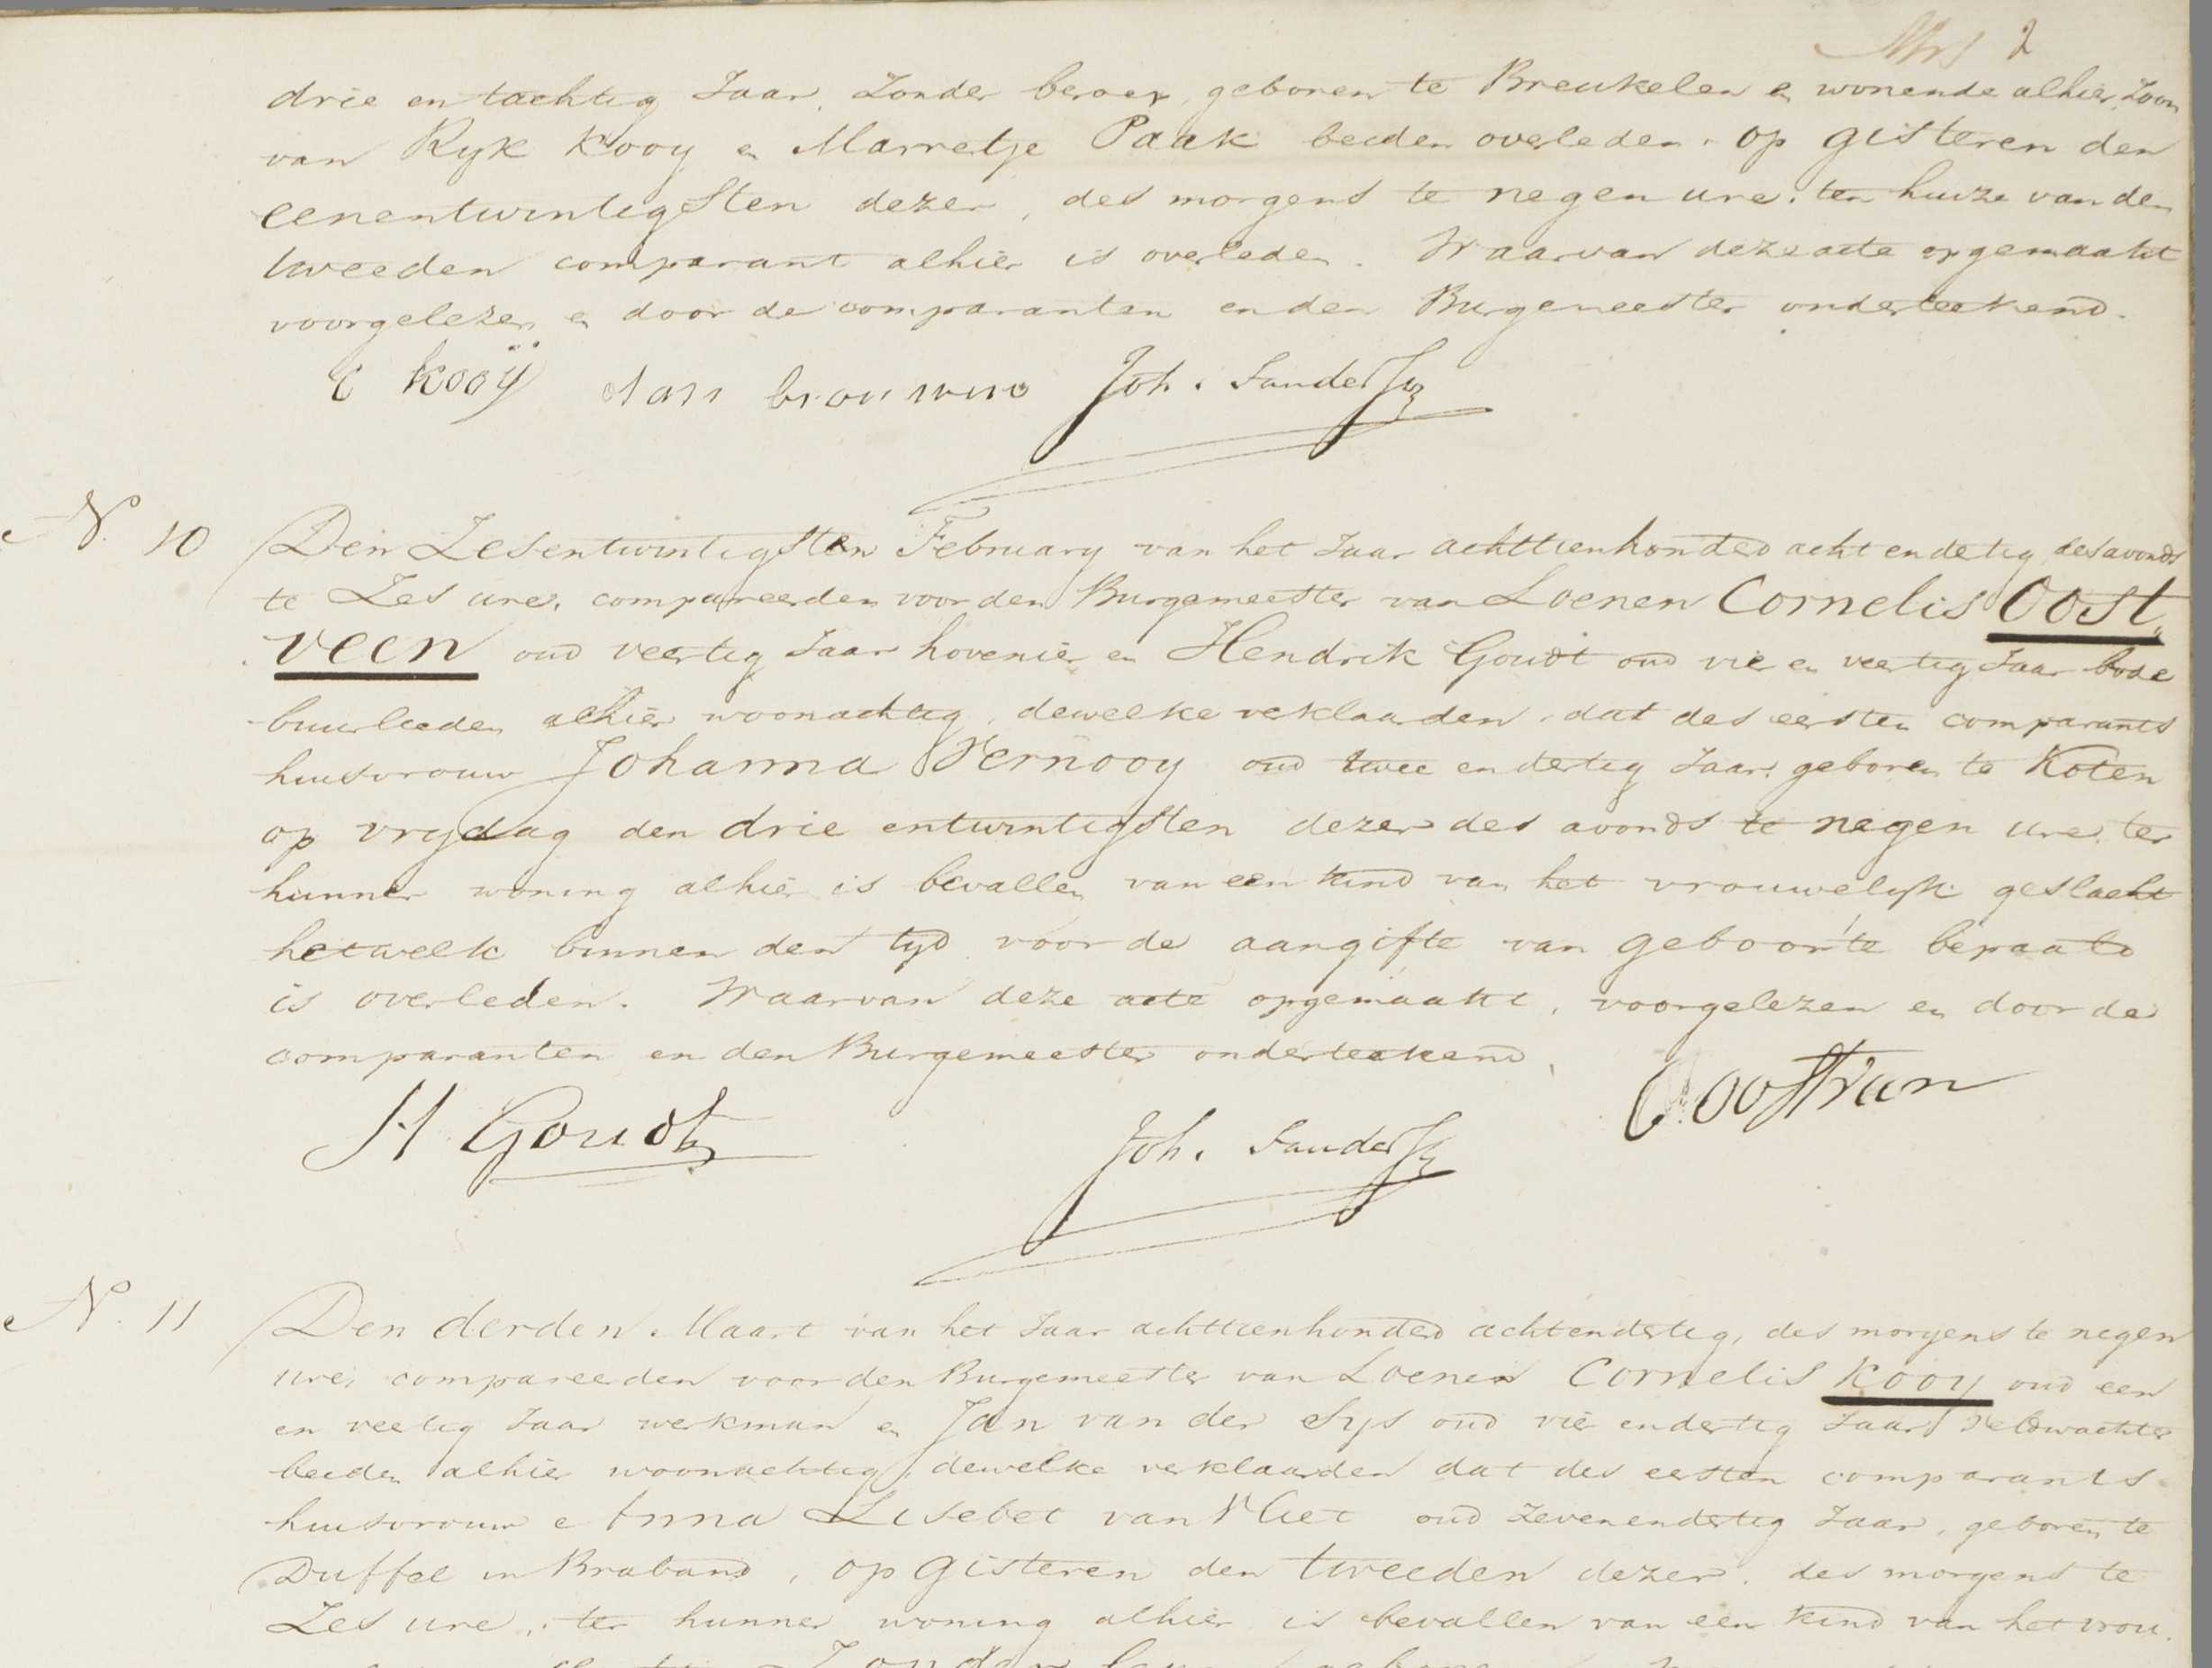 2
drie en tachtig Jaar, Zonder beroep, geboren te Breukelen en wonende alhier, Zoon
van Ryk Kooy en Marretje Paak beiden overleden, op gisteren den
eenentwintigsten dezer, des morgens te negen ure, ten huize van den
tweeden comparant alhier is overleden. Waarvan deze acte opgemaakt
voorgelezen en door de comparanten en den Burgemeester onderteekend.
C Kooÿ Jan brouwer Joh. Sanders
N. 10 Den Zesentwintigsten February van het Jaar achttienhonderd acht en dertig des avonds
te Zes ure, compareerden voor den Burgemeester van Loenen Cornelis Oost„
veen oud veertig Jaar hovenier en Hendrik Goudt oud vier en veertig Jaar bode
buurlieden alhier woonachtig, dewelke verklaarden, dat des eersten comparants
huisvrouw Johanna Vernooy oud twee en dertig Jaar, geboren te Koten
op vrydag den drie entwintigsten dezer des avonds te negen ure, ter
hunner woning alhier is bevallen van een kind van het vrouwelyk geslacht
hetwelk binnen den tyd voor de aangifte van geboorte bepaald
is overleden. Waarvan deze acte opgemaakt, voorgelezen en door de
comparanten en den Burgemeester onderteekend.
H Goudt Joh. Sanders C. Oostveen
N. 11 Den derden Maart van het Jaar achttienhonderd achtendertig, des morgens te negen
ure, compareerden voor den Burgemeester van Loenen Cornelis Kooy oud een
en veertig Jaar werkman en Jan van der Syp oud vier endertig Jaar Veldwachter
beiden alhier woonachtig, dewelke verklaarden dat des eersten comparants
huisvrouw Anna Lisebet van Vliet oud Zevenendertig Jaar, geboren te
Duffel in Braband, op gisteren den tweeden dezer, des morgens te
Zes ure, ter hunner woning alhier is bevallen van een kind van het vrou